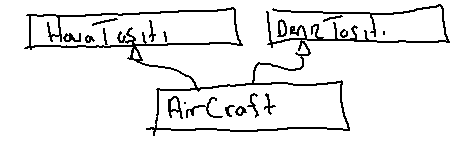 Hava Tasiti
Deniz Tasit.
AirCraft